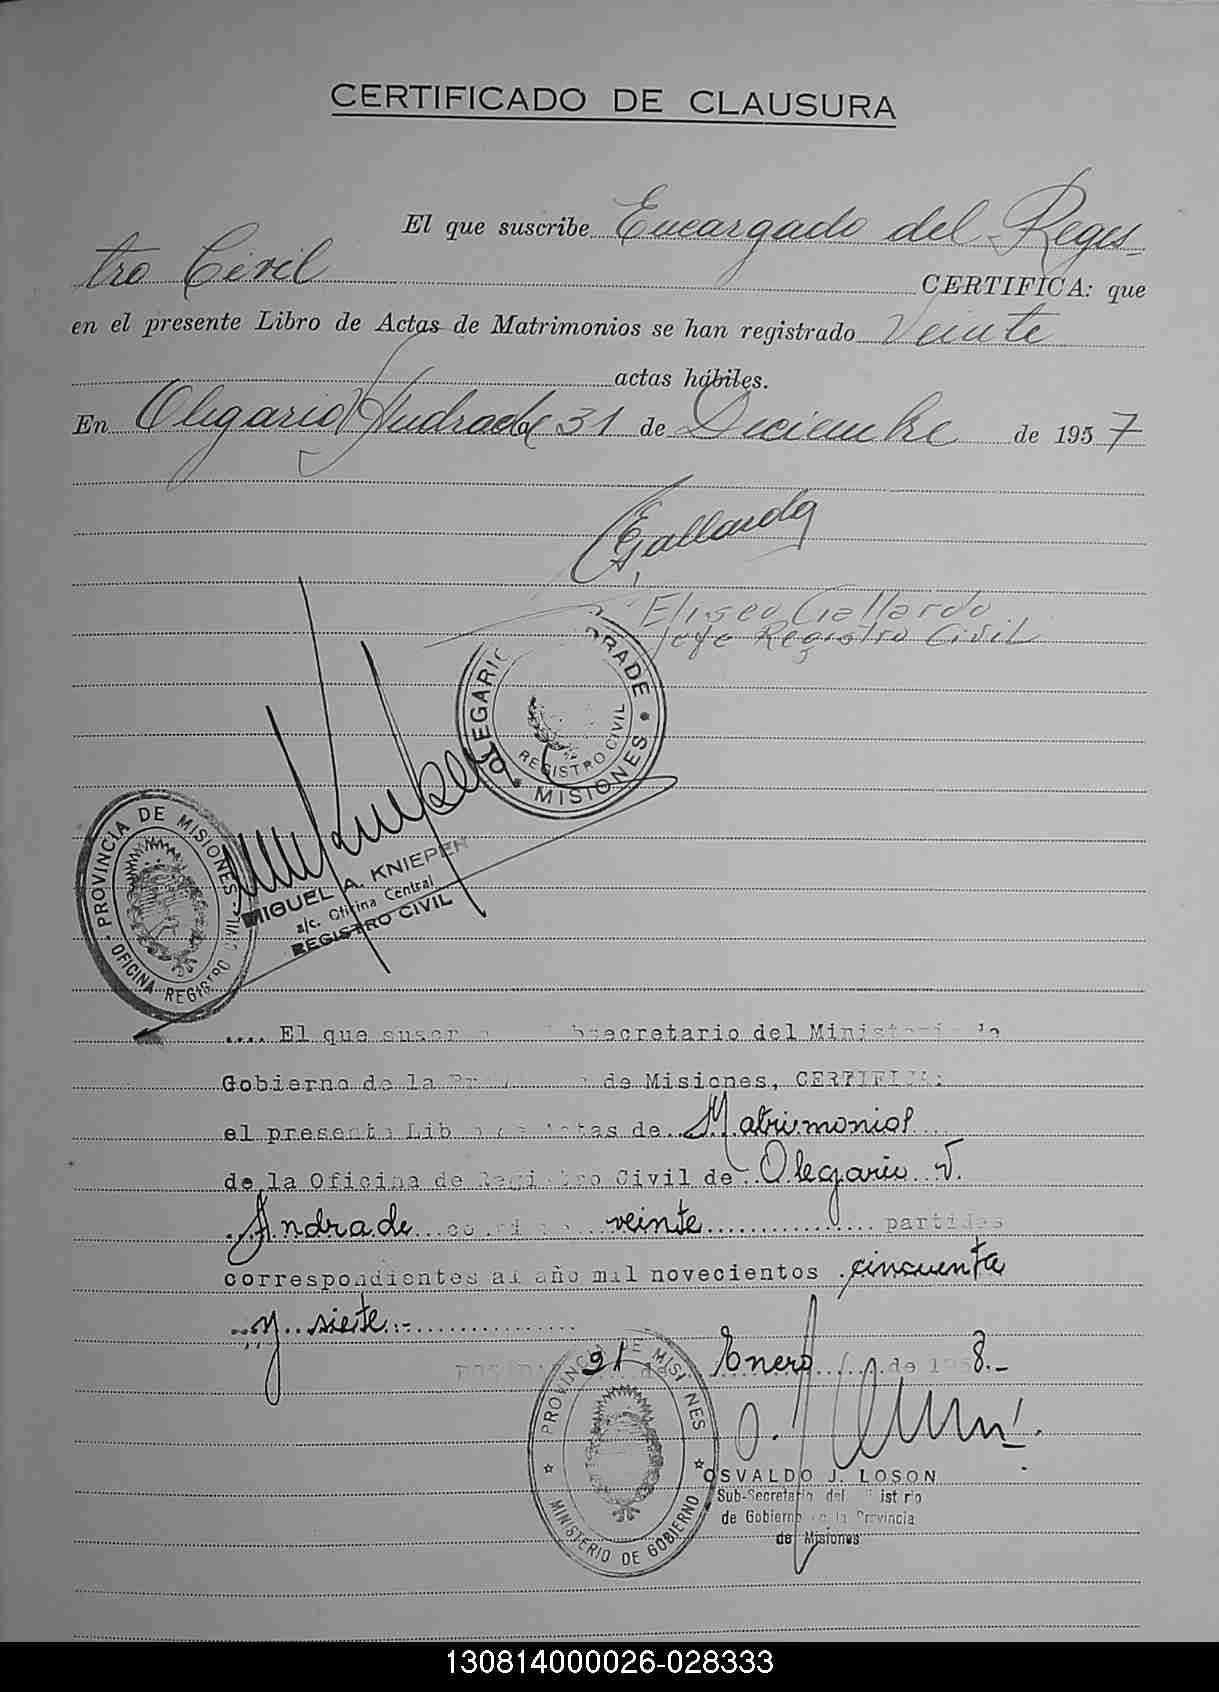 CERTIFICADO DE CLAUSURA
El que suscribe Encargado del Regis-
tro Civil CERTIFICA: que
en el presente Libro de Actas de Matrimonios se han registrado Veinte
actas hábiles.
En Olegario V Andrade a 31 de Diciembre de 1957
EGallardo
Eliseo Gallardo
Jefe Registro Civil
OLEGARIO ANDRADE
REGISTRO CIVIL
* MISIONES *
PROVINCIA DE MISIONES
OFICINA REGISTRO CIVIL
MIGUEL A. KNIEPER
a/c. Oficina Central
REGISTRO CIVIL
.... El que suscr bsecretario del Ministerio de
Gobierno de la Pr de Misiones, CERTIFICA:
el presente Libro de Actas de Matrimonios
de la Oficina de Registro Civil de Olegario V.
Andrade veinte partidas
correspondientes al año mil novecientos cincuenta
y siete.-
POSADAS 21 de Enero de 1958.-
PROVINCIA DE MISIONES
MINISTERIO DE GOBIERNO
OSVALDO J. LOSON
Sub-Secretario del Ministerio
de Gobierno de la Provincia
de Misiones
130814000026-028333